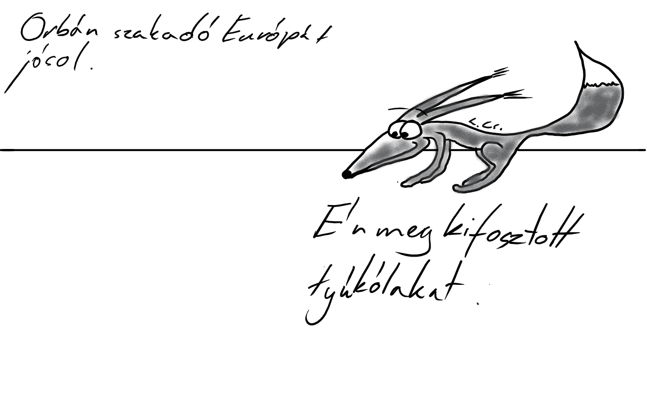 Orbán szakadó Európát
jócol.
Én meg kifosztott
tyúkólakat.